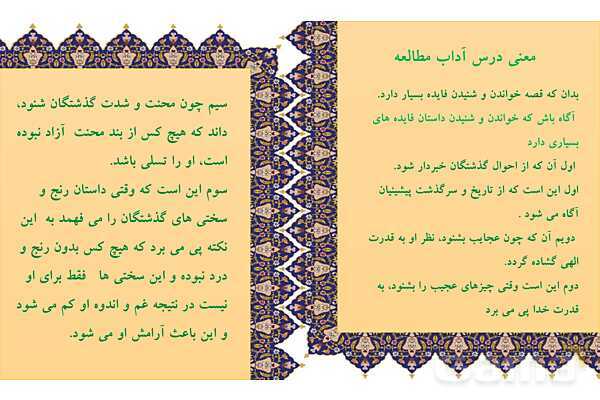 معنی درس آداب مطالعه
بدان که قصه خواندن و شنیدن فایده بسیار دارد.
آگاه باش که خواندن و شنیدن داستان فایده های
بسیاری دارد
اول آن که از احوال گذشتگان خبردار شود.
اول این است که از تاریخ و سرگذشت پیشینیان
آگاه می شود .
دویم آن که چون عجایب بشنود، نظر او به قدرت
الهی گشاده گردد.
دوم این است وقتی چیزهای عجیب را بشنود، به
قدرت خدا پی می برد
سیم چون محنت و شدت گذشتگان شنود،
داند که هیچ کس از بند محنت آزاد نبوده
است، او را تسلی باشد.
سوم این است که وقتی داستان رنج و
سختی های گذشتگان را می فهمد به این
نکته پی می برد که هیچ کس بدون رنج و
درد نبوده و این سختی ها فقط برای او
نیست در نتیجه غم و اندوه او کم می شود
و این باعث آرامش او می شود.